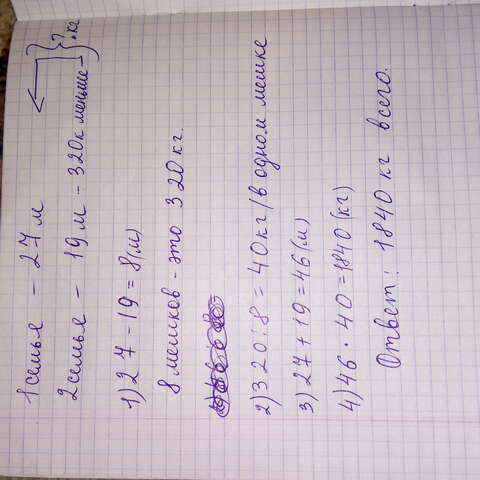 1 семья – 27 м
2 семья – 19 м – 320 к меньше
? кг
1) 27 – 19 = 8 (м)
8 мешков – это 320 кг.
2) 320 : 8 = 40 кг / в одном мешке
3) 27 + 19 = 46 (м)
4) 46 · 40 = 1840 (кг)
Ответ: 1840 кг всего.